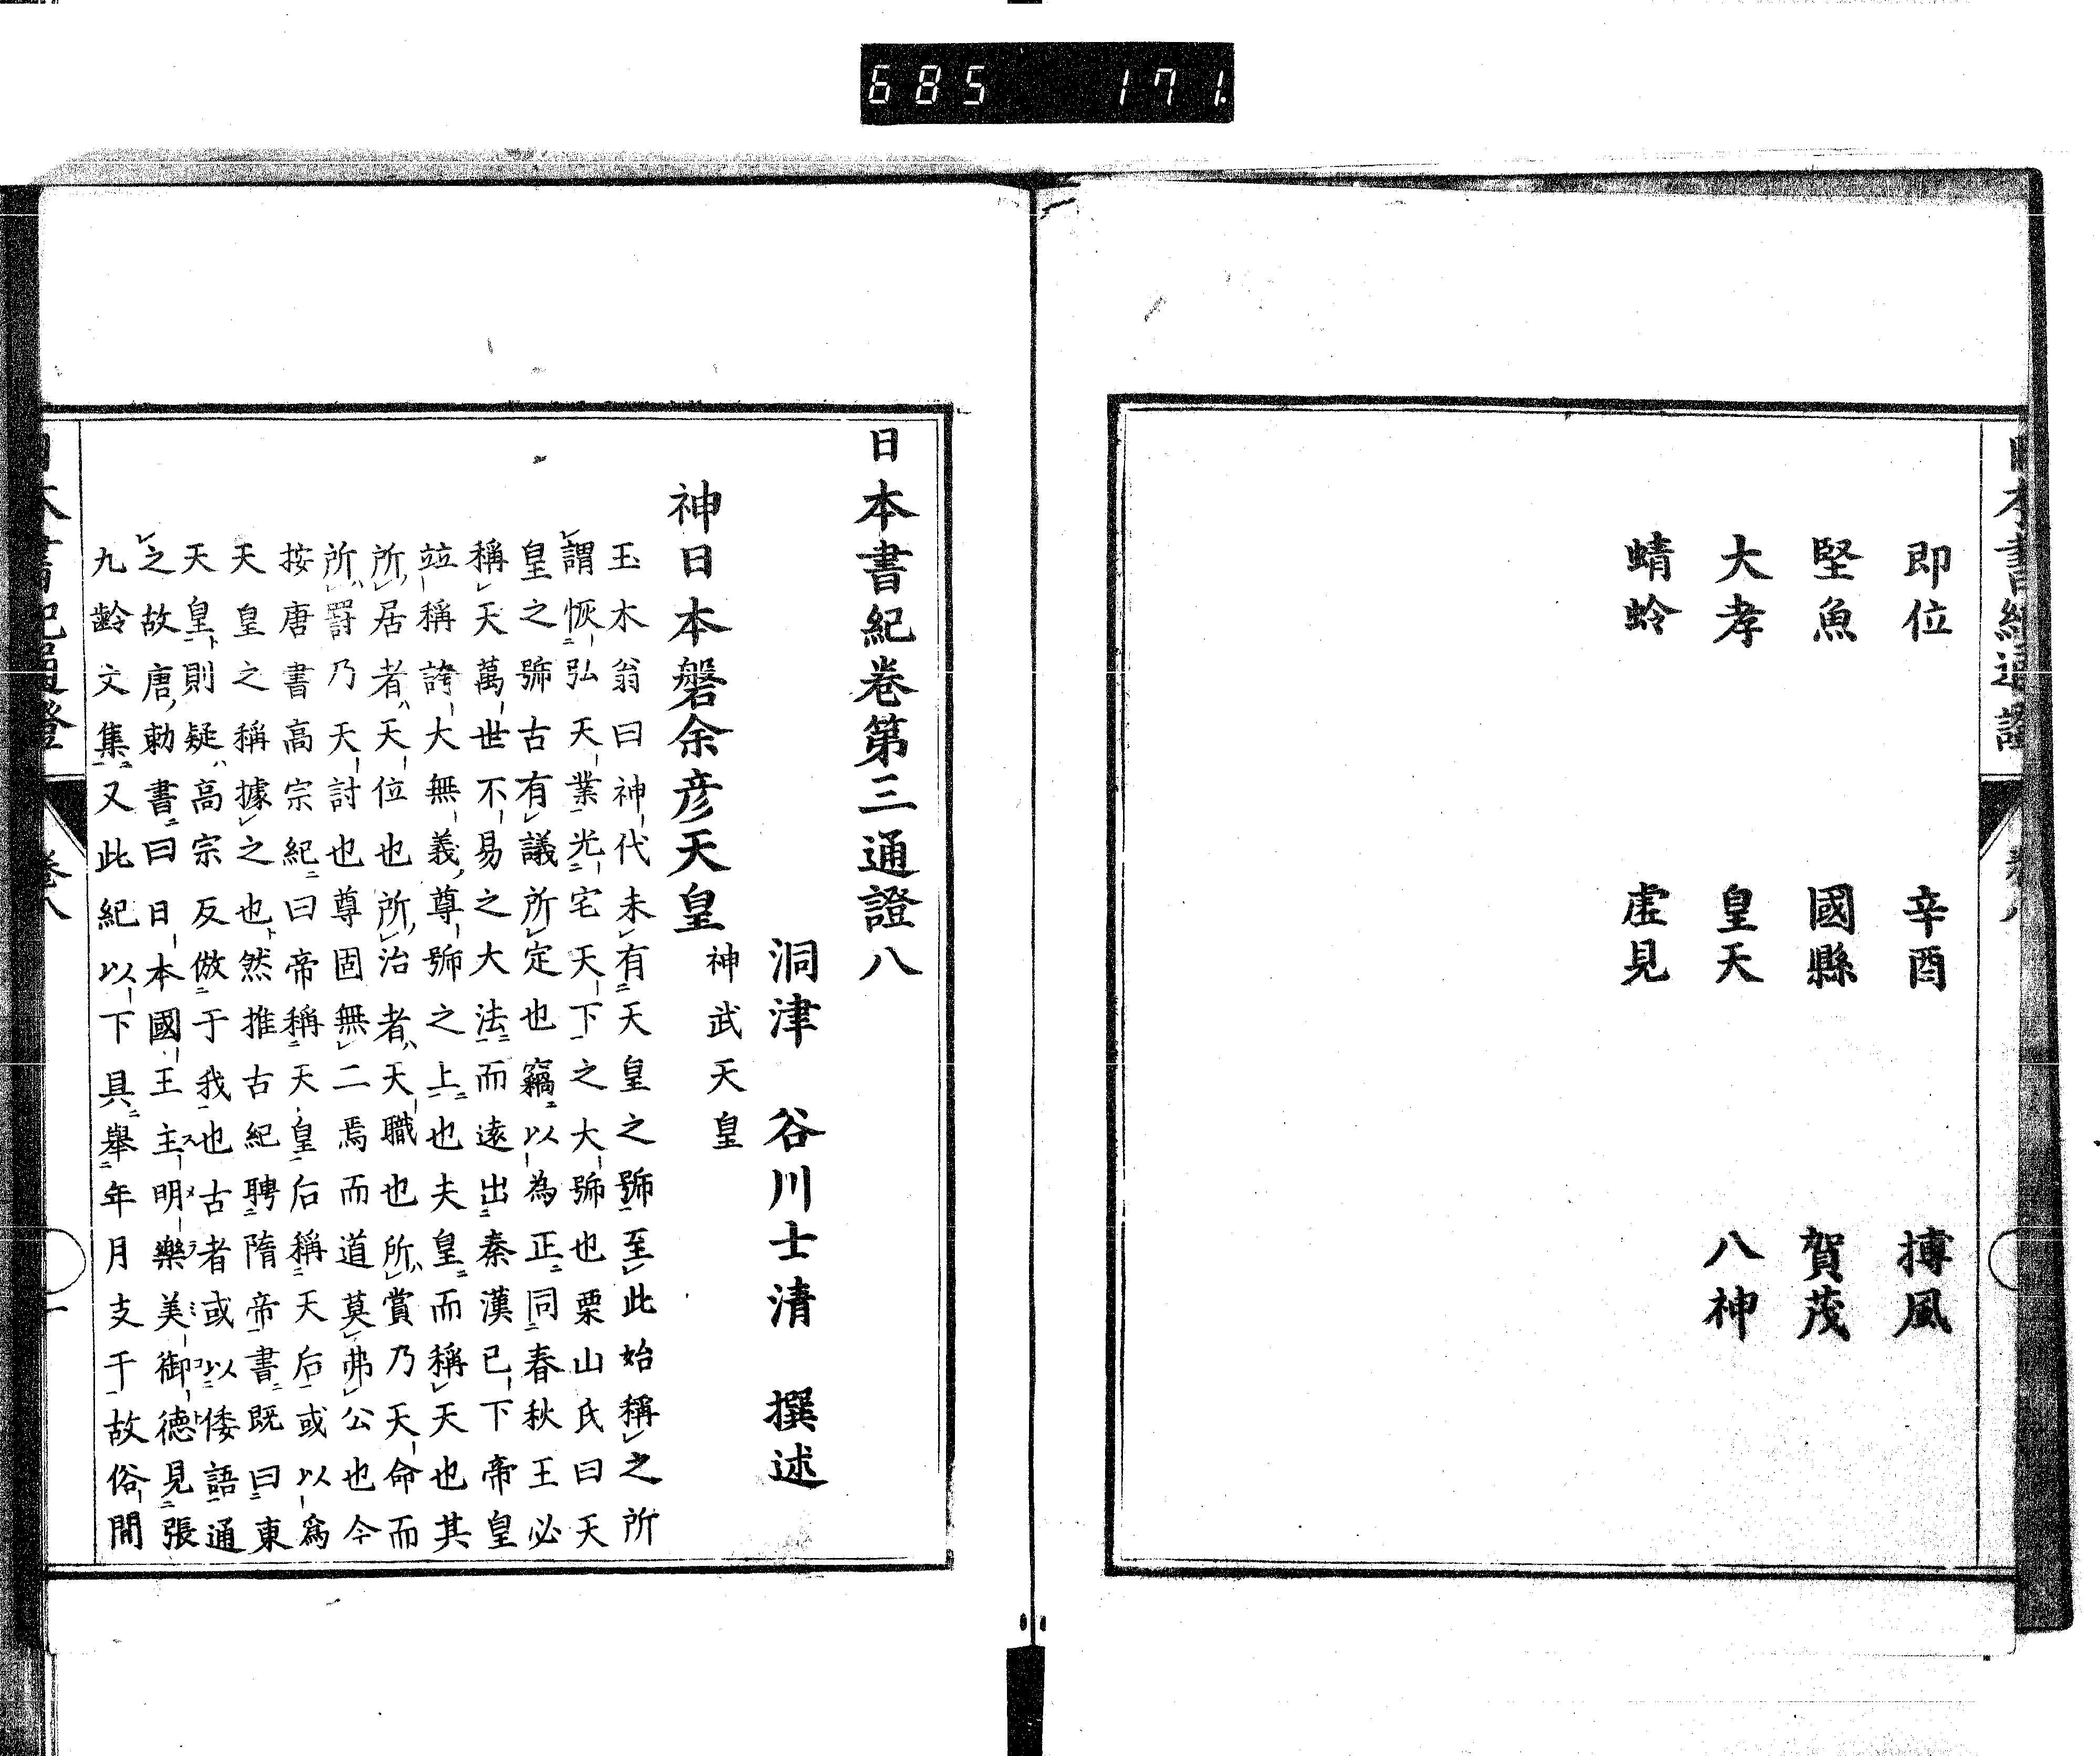 685 171.
日本書紀通證 卷八
即位 辛酉 搏風
堅魚 國縣 賀茂
大孝 皇天 八神
蜻蛉 虛見
日本書紀卷第三通證八
洞津 谷川士清 撰述
神日本磐余彦天皇 神武天皇
玉木翁曰神代未有天皇之號至此始稱之所
謂恢弘天業光宅天下之大號也栗山氏曰天
皇之號古有議所定也竊以為正同春秋王必
稱天萬世不易之大法而遠出秦漢已下帝皇
竝稱誇大無義尊號之上也夫皇而稱天也其
所居者天位也所治者天職也所賞乃天命而
所罸乃天討也尊固無二焉而道莫弗公也今
按唐書高宗紀曰帝稱天皇后稱天后或以爲
天皇之稱據之也然推古紀聘隋帝書既曰東
天皇則疑高宗反倣于我也古者或以倭語通
之故唐勅書曰日本國王主明樂美御德見張
九齡文集又此紀以下具舉年月支干故俗間
日本書紀通證 卷八 一